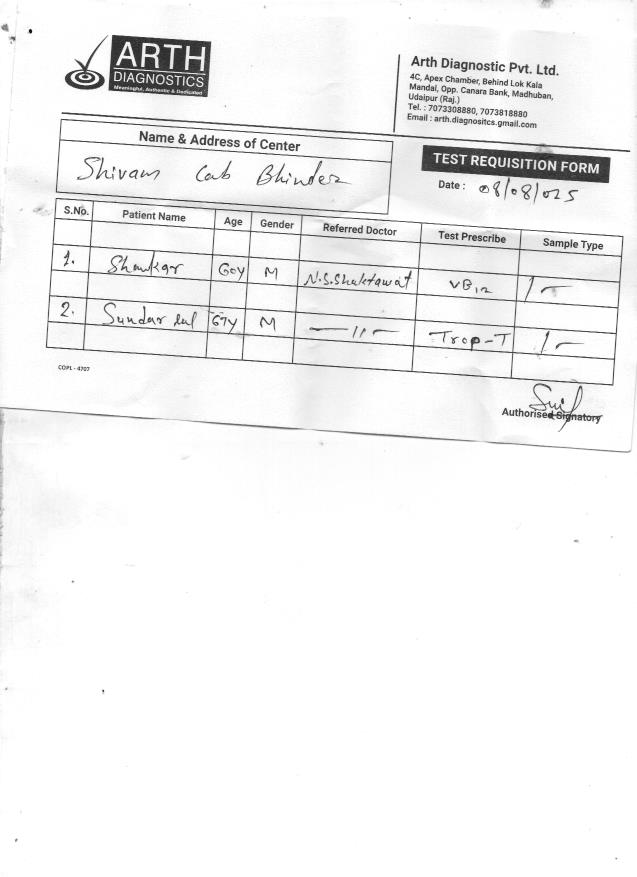 ARTH
DIAGNOSTICS
Meaningful, Authentic & Dedicated
Arth Diagnostic Pvt. Ltd.
4C, Apex Chamber, Behind Lok Kala
Mandal, Opp. Canara Bank, Madhuban,
Udaipur (Raj.)
Tel. : 7073308880, 7073818880
Email : arth.diagnositcs.gmail.com
Name & Address of Center
Shivam Lab Bhinder
TEST REQUISITION FORM
Date : 08/08/025
S.No. Patient Name Age Gender Referred Doctor Test Prescribe Sample Type
1. Shankar 60Y M N.S.Shaktawat VB12
2. Sundar lal 67Y M —11— Trop-T
COPL - 4707
Authorised Signatory